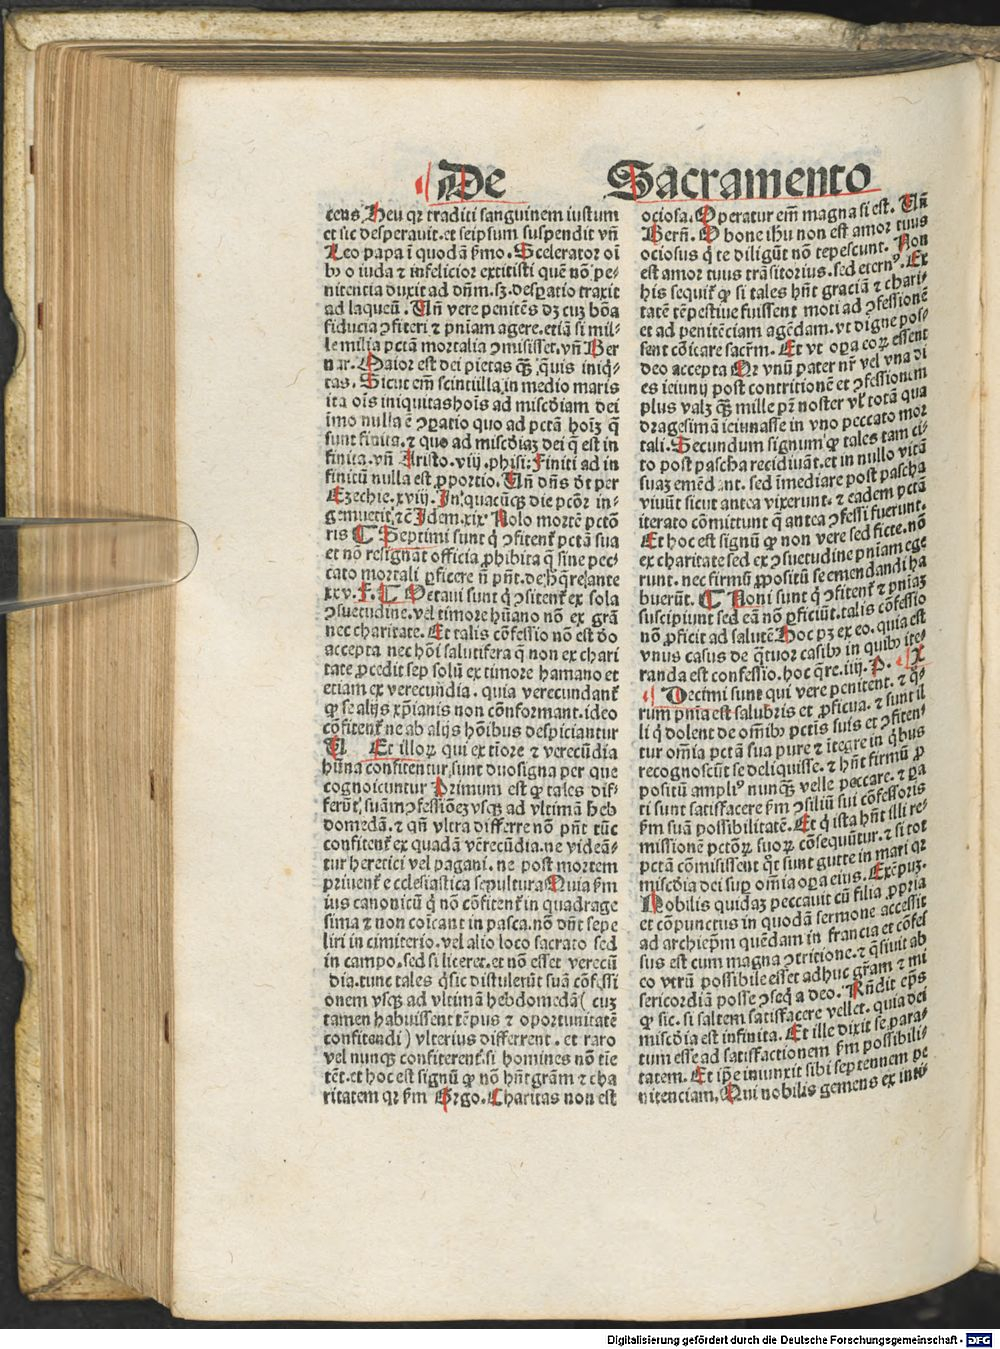 De Sacramento
cens, Heu qꝛ traditi sanguinem iustum
et sic desperauit. et seipsum suspendit vñ
Leo papa ī quodā ẜmo. Scelerator oī
bꝰ o iuda ⁊ infelicior extitisti quē nō pe⸗
nitentia duxit ad dñm. sꝫ. desꝑatio traxit
ad laqueū. Uñ vere penitēs dꝫ cuꝫ bōa
fiducia ↄfiteri ⁊ pniam agere. etiā si mil⸗
le milia pctā mortalia ↄmisisset. vñ Ber
nar. Maior est dei pietas qꝫ̄ quis iniq̄⸗
tas. Sicut em̄ scintilla in medio maris
ita oīs iniquitas hoīs ad miscḋiam dei
īmo nulla ē ↄꝑatio quo ad pctā hoīꝫ q̄
sunt finita. ⁊ quo ad miscḋiaꝫ dei q̄ est in
finita. vñ Aristo. viij. phisi: Finiti ad in
finitū nulla est ꝓportio. Uñ dñs ḋt per
Ezechie. xviij. In quacūqꝫ die pctōꝛ in⸗
gemuerit, ⁊c̄ Idem. xix Nolo mortē pctō
ris ¶ Septimi sunt q̇ ↄfitent᷑ pctā sua
et nō resignāt officia ꝓhibita q̄ sine pec⸗
cato mortali ꝑficere ñ pñt. de hꝰ q̄re ante
xxv. F. ¶ Octaui sunt q̇ ↄfitent᷑ ex sola
ↄsuetudine. vel timore hūano nō ex grā
nec charitate. Et talis cōfessio nō est ḋo
accepta nec hōi salutifera q̄ non ex chari
tate ꝓcedit sep solū ex timore humano et
etiam ex verecundia. quia verecundant᷑
ꝙ se alijs xp̄ianis non cōnformant. ideo
cōfitent᷑ ne ab alijs hōibus despiciantur
U Et illoꝝ qui ex tīore ⁊ verecūdia
hūna confitentur, sunt duo signa per que
cognoscuntur Primum est ꝙ tales dif⸗
ferūt, suām ↄfessiōeꝫ vsqꝫ ad vltimā heb
domedā. ⁊ qñ vltra differre nō pñt tūc
confitent᷑ ex quadā verecūdia. ne videā⸗
tur heretici vel pagani. ne post mortem
priuent᷑ ecclesiastica sepultura Quia ẜm
ius canonicū q̇ nō cōfitent᷑ in quadrage
sima ⁊ non coīcant in pasca. nō dñt sepe
liri in cimiterio. vel alio loco sacrato sed
in campo. sed si liceret. et nō esset verecū
dia. tunc tales q̇ sic distulerūt suā cōfessi
onem vsqꝫ ad vltimā hebdomedā ( cuꝫ
tamen habuissent tēpus ⁊ oportunitatē
confitendi ) vlterius differrent . et raro
vel nunqꝫ confiterent᷑. si homines nō tīe
tēt. et hoc est signū ꝙ nō hñt grām ⁊ cha
ritatem qꝛ ẜm Grego. Charitas non est
ociosa. Operatur em̄ magna si est. Uñ
Berñ. O bone ihu non est amor tuus
ociosus q̇ te diligūt nō tepescunt. Non
est amor tuus trāsitorius. sed eternꝰ. Ex
his sequit᷑ ꝙ si tales hñt graciā ⁊ chari⸗
tatē tēpestiue fuissent moti ad ↄfessionē
et ad penitēciam agēdam. vt digne pos⸗
sent cōicare sacr̄m. Et vt oꝑa eoꝝ essent
deo accepta Qꝛ vnū pater nr̄ vel vna di
es ieiunij post contritionē et ↄfessionem
plus valꝫ qꝫ̄ mille pr̄ noster vl᷑ totā qua
dragesimā ieiunasse in vno peccato mor
tali. Secundum signum ꝙ tales tam ci⸗
to post pascha recidiuāt. et in nullo vitā
suaꝫ emēdant. sed īmediare post pascha
viuūt sicut antea vixerunt. ⁊ eadem pctā
iterato cōmittunt q̄ antea ↄfessi fuerunt.
Et hoc est signū ꝙ non vere sed ficte. nō
ex charitate sed ex ↄsuetudine pniam ege
runt. nec firmū ꝓpositū se emendandi ha
buerūt. ¶ Noni sunt q̇ ↄfitent᷑ ⁊ pniaꝫ
suscipiunt sed eā nō ꝑficiūt. talis cōfessio
nō ꝓficit ad salutē Hoc pꝫ ex eo. quia est
vnus casus de q̄tuor casibꝰ in quibꝰ ite⸗
randa est confessio. hoc q̄re. iiij. P. X
Decimi sunt qui vere penitent. ⁊ q̇⸗
rum pnia est salubris et ꝓficua. ⁊ sunt il
li q̇ dolent de omībꝰ pctis suis et ↄfiten⸗
tur omīa pctā sua pure ⁊ ītegre in q̇bus
recognoscūt se deliquisse. ⁊ hñt firmū ꝓ
positū ampliꝰ nunqꝫ velle peccare. ⁊ ꝑa
ti sunt satisfacere ẜm ↄsiliū sui cōfessoris
ẜm suā possibilitatē. Et q̇ ista hñt illi re⸗
missionē pctōꝝ suoꝝ cōsequūtur. ⁊ si tot
pctā cōmisissent qt̄ sunt gutte in mari qꝛ
miscḋia dei suꝑ omīa oꝑa eius. Exēpuꝫ.
Nobilis quidaꝫ peccauit cū filia ꝓpria
et cōpunctus in quodā sermone accessit
ad archiep̄m quēdam in francia et cōfes
sus est cum magna ↄtritione. ⁊ q̄siuit ab
eo vtrū possibile esset adhuc gr̄am ⁊ mi
sericordiā posse ↄseq̇ a deo. Rñdit ep̄s
ꝙ sic. si saltem satisfacere vellet. quia dei
miscḋia est infinita. Et ille dixit se para⸗
tum esse ad satisfactionem ẜm possibili⸗
tatem. Et ip̄e iniunxit sibi septennem pe
nitenciam, Qui nobilis gemens ex inti⸗
Digitalisierung gefördert durch die Deutsche Forschungsgemeinschaft - DFG